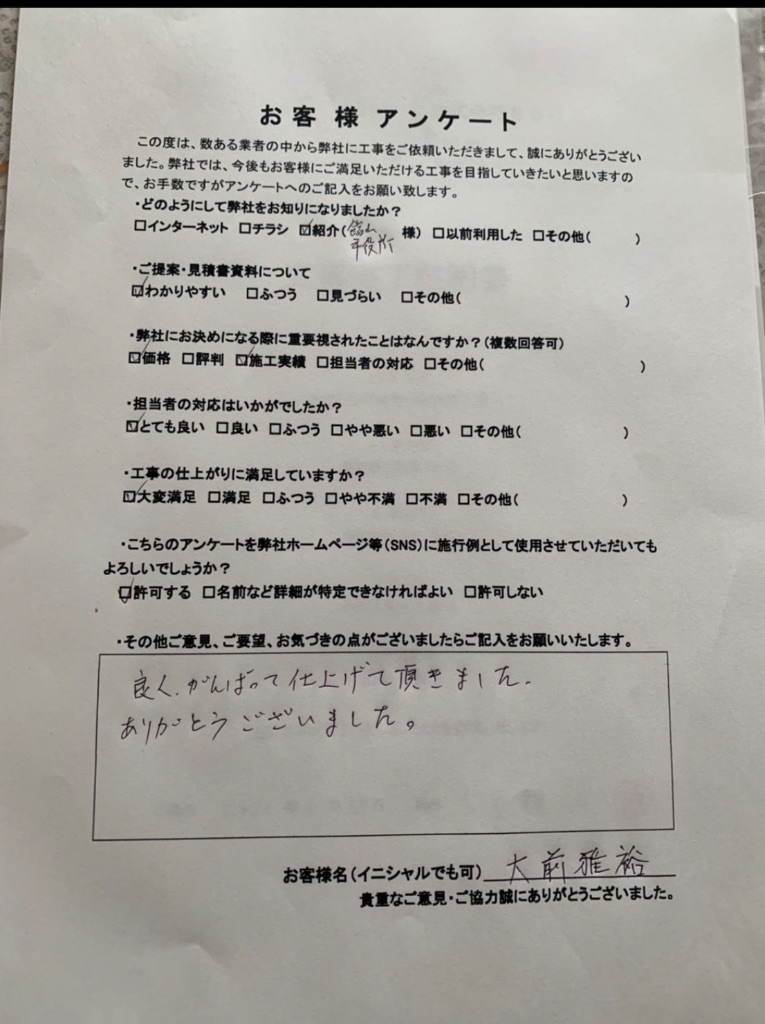 お客様 アンケート
この度は、数ある業者の中から弊社に工事をご依頼いただきまして、誠にありがとうござい
ました。弊社では、今後もお客様にご満足いただける工事を目指していきたいと思いますの
で、お手数ですがアンケートへのご記入をお願い致します。
・どのようにして弊社をお知りになりましたか？
☐インターネット ☐チラシ ☑紹介(館山市役所 様) ☐以前利用した ☐その他( )
・ご提案・見積書資料について
☑わかりやすい ☐ふつう ☐見づらい ☐その他( )
・弊社にお決めになる際に重要視されたことはなんですか？(複数回答可)
☑価格 ☐評判 ☑施工実績 ☐担当者の対応 ☐その他( )
・担当者の対応はいかがでしたか？
☑とても良い ☐良い ☐ふつう ☐やや悪い ☐悪い ☐その他( )
・工事の仕上がりに満足していますか？
☑大変満足 ☐満足 ☐ふつう ☐やや不満 ☐不満 ☐その他( )
・こちらのアンケートを弊社ホームページ等(SNS)に施行例として使用させていただいても
よろしいでしょうか？
☑許可する ☐名前など詳細が特定できなければよい ☐許可しない
・その他ご意見、ご要望、お気づきの点がございましたらご記入をお願いいたします。
良く、がんばって仕上げて頂きました。
ありがとうございました。
お客様名(イニシャルでも可) 大前雅裕
貴重なご意見・ご協力誠にありがとうございました。